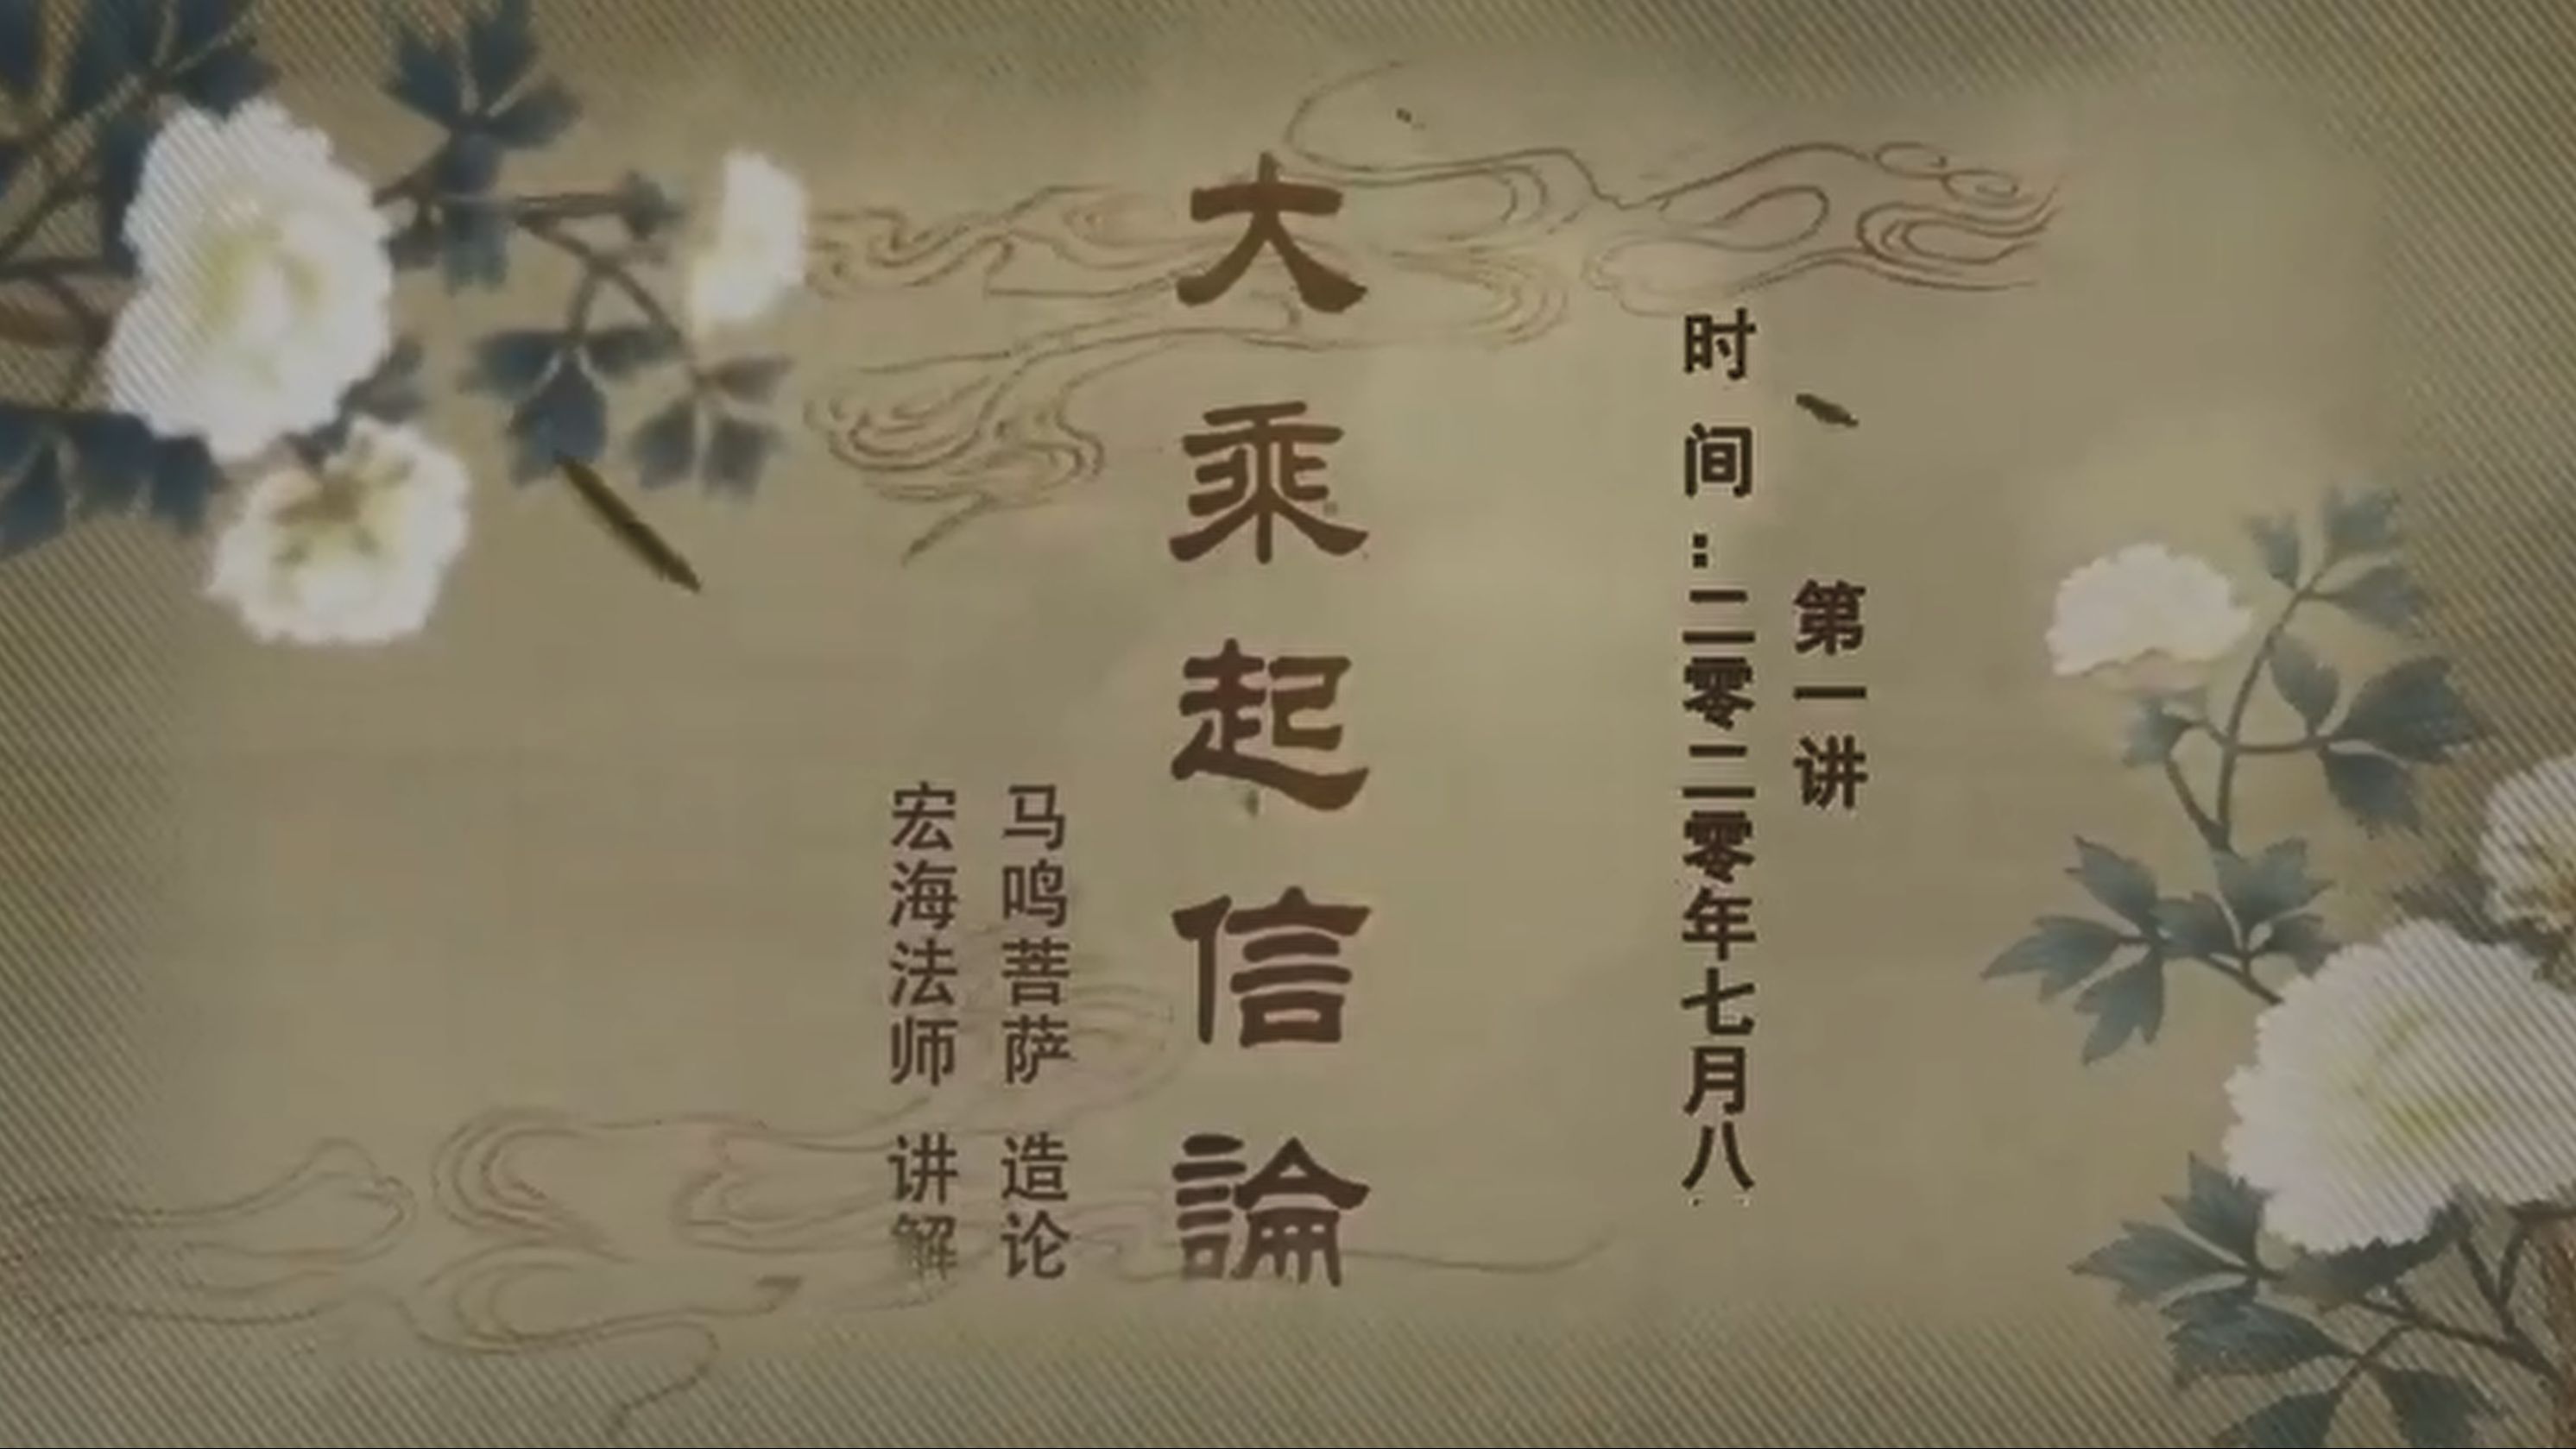 第一讲
时间:二零二零年七月八
大乘起信論
马鸣菩萨 造论
宏海法师 讲解